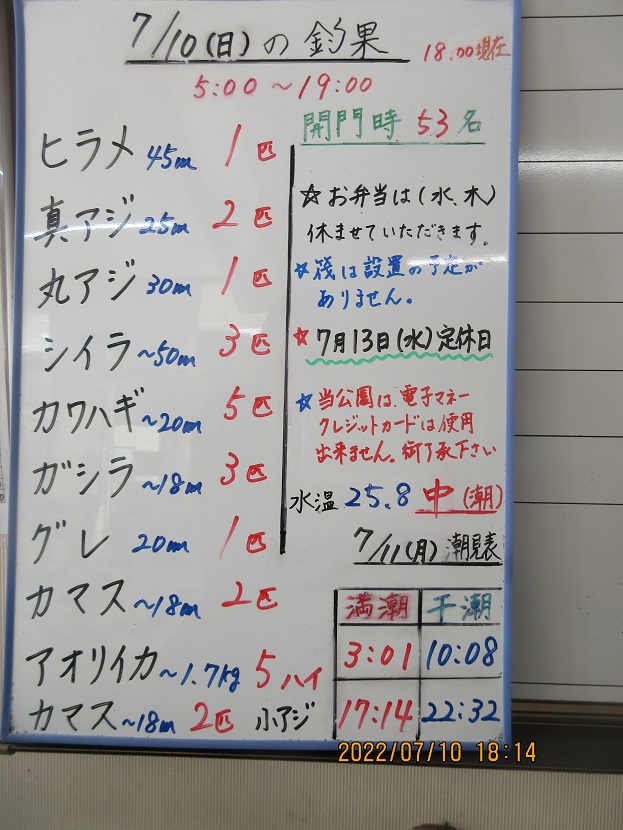 7/10(日)の釣果
18:00現在
5:00～19:00
ヒラメ 45m 1匹
真アジ 25m 2匹
丸アジ 30m 1匹
シイラ ~50m 3匹
カワハギ ~20m 5匹
ガシラ ~18m 3匹
グレ 20m 1匹
カマス ~18m 2匹
アオリイカ ~1.7kg 5ハイ
カマス ~18m 2匹 小アジ
開門時 53名
☆お弁当は(水、木)
休ませていただきます。
☆筏は設置の予定が
ありません。
☆7月13日(水)定休日
☆当公園は、電子マネー
クレジットカードは使用
出来ません。御了承下さい
水温 25.8 中(潮)
7/11(月)潮見表
満潮 干潮
3:01 10:08
17:14 22:32
2022/07/10 18:14